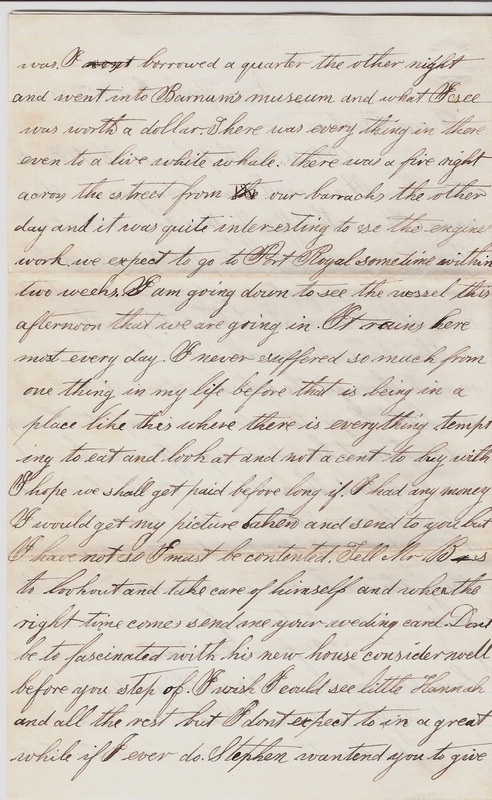 was. I borrowed a quarter the other night
and went into Barnums museum and what I see
was worth a dollar. There was every thing in there
even to a live white whale. there was a fire right
across the street from our barracks the other
day and it was quite interesting to se the engine
work. we expect to go to Port Royal sometime within
two weeks. I am going down to see the vessel this
afternoon that we are going in. It rains here
most every day. I never suffered so much from
one thing in my life before that is being in a
place like this where there is everything tempt
ing to eat and look at and not a cent to buy with
I hope we shall get paid before long if I had any money
I would get my picture taken and send to you but
I have not so I must be contented. Tell Mr
to lookout and take care of himself and when the
right time comes send me your weding card. Dont
be to fascinated with his new house consider well
before you step of. I wish I could see little Hannah
and all the rest but I dont expect to in a great
while if I ever do. Stephen wantend you to give